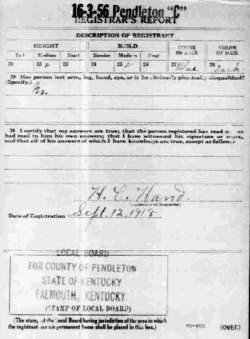 16-3-56 Pendleton "C"
REGISTRAR'S REPORT
DESCRIPTION OF REGISTRANT
HEIGHT BUILD COLOR OF EYES COLOR OF HAIR
Tall Medium Short Slender Medium Stout
21 22 23 24 25 26 27 28
29 Has person lost arm, leg, hand, eye, or is he obviously physically disqualified?
(Specify.)
No
30 I certify that my answers are true; that the person registered has read or has
had read to him his own answers; that I have witnessed his signature or mark,
and that all of his answers of which I have knowledge are true, except as follows:
H. C. Hand
Date of Registration Sept. 12, 1918
LOCAL BOARD
FOR COUNTY OF PENDLETON
STATE OF KENTUCKY
FALMOUTH, KENTUCKY
(STAMP OF LOCAL BOARD)
(The stamp of the Local Board having jurisdiction of the area in which
the registrant has his permanent home shall be placed in this box.)
(OVER)